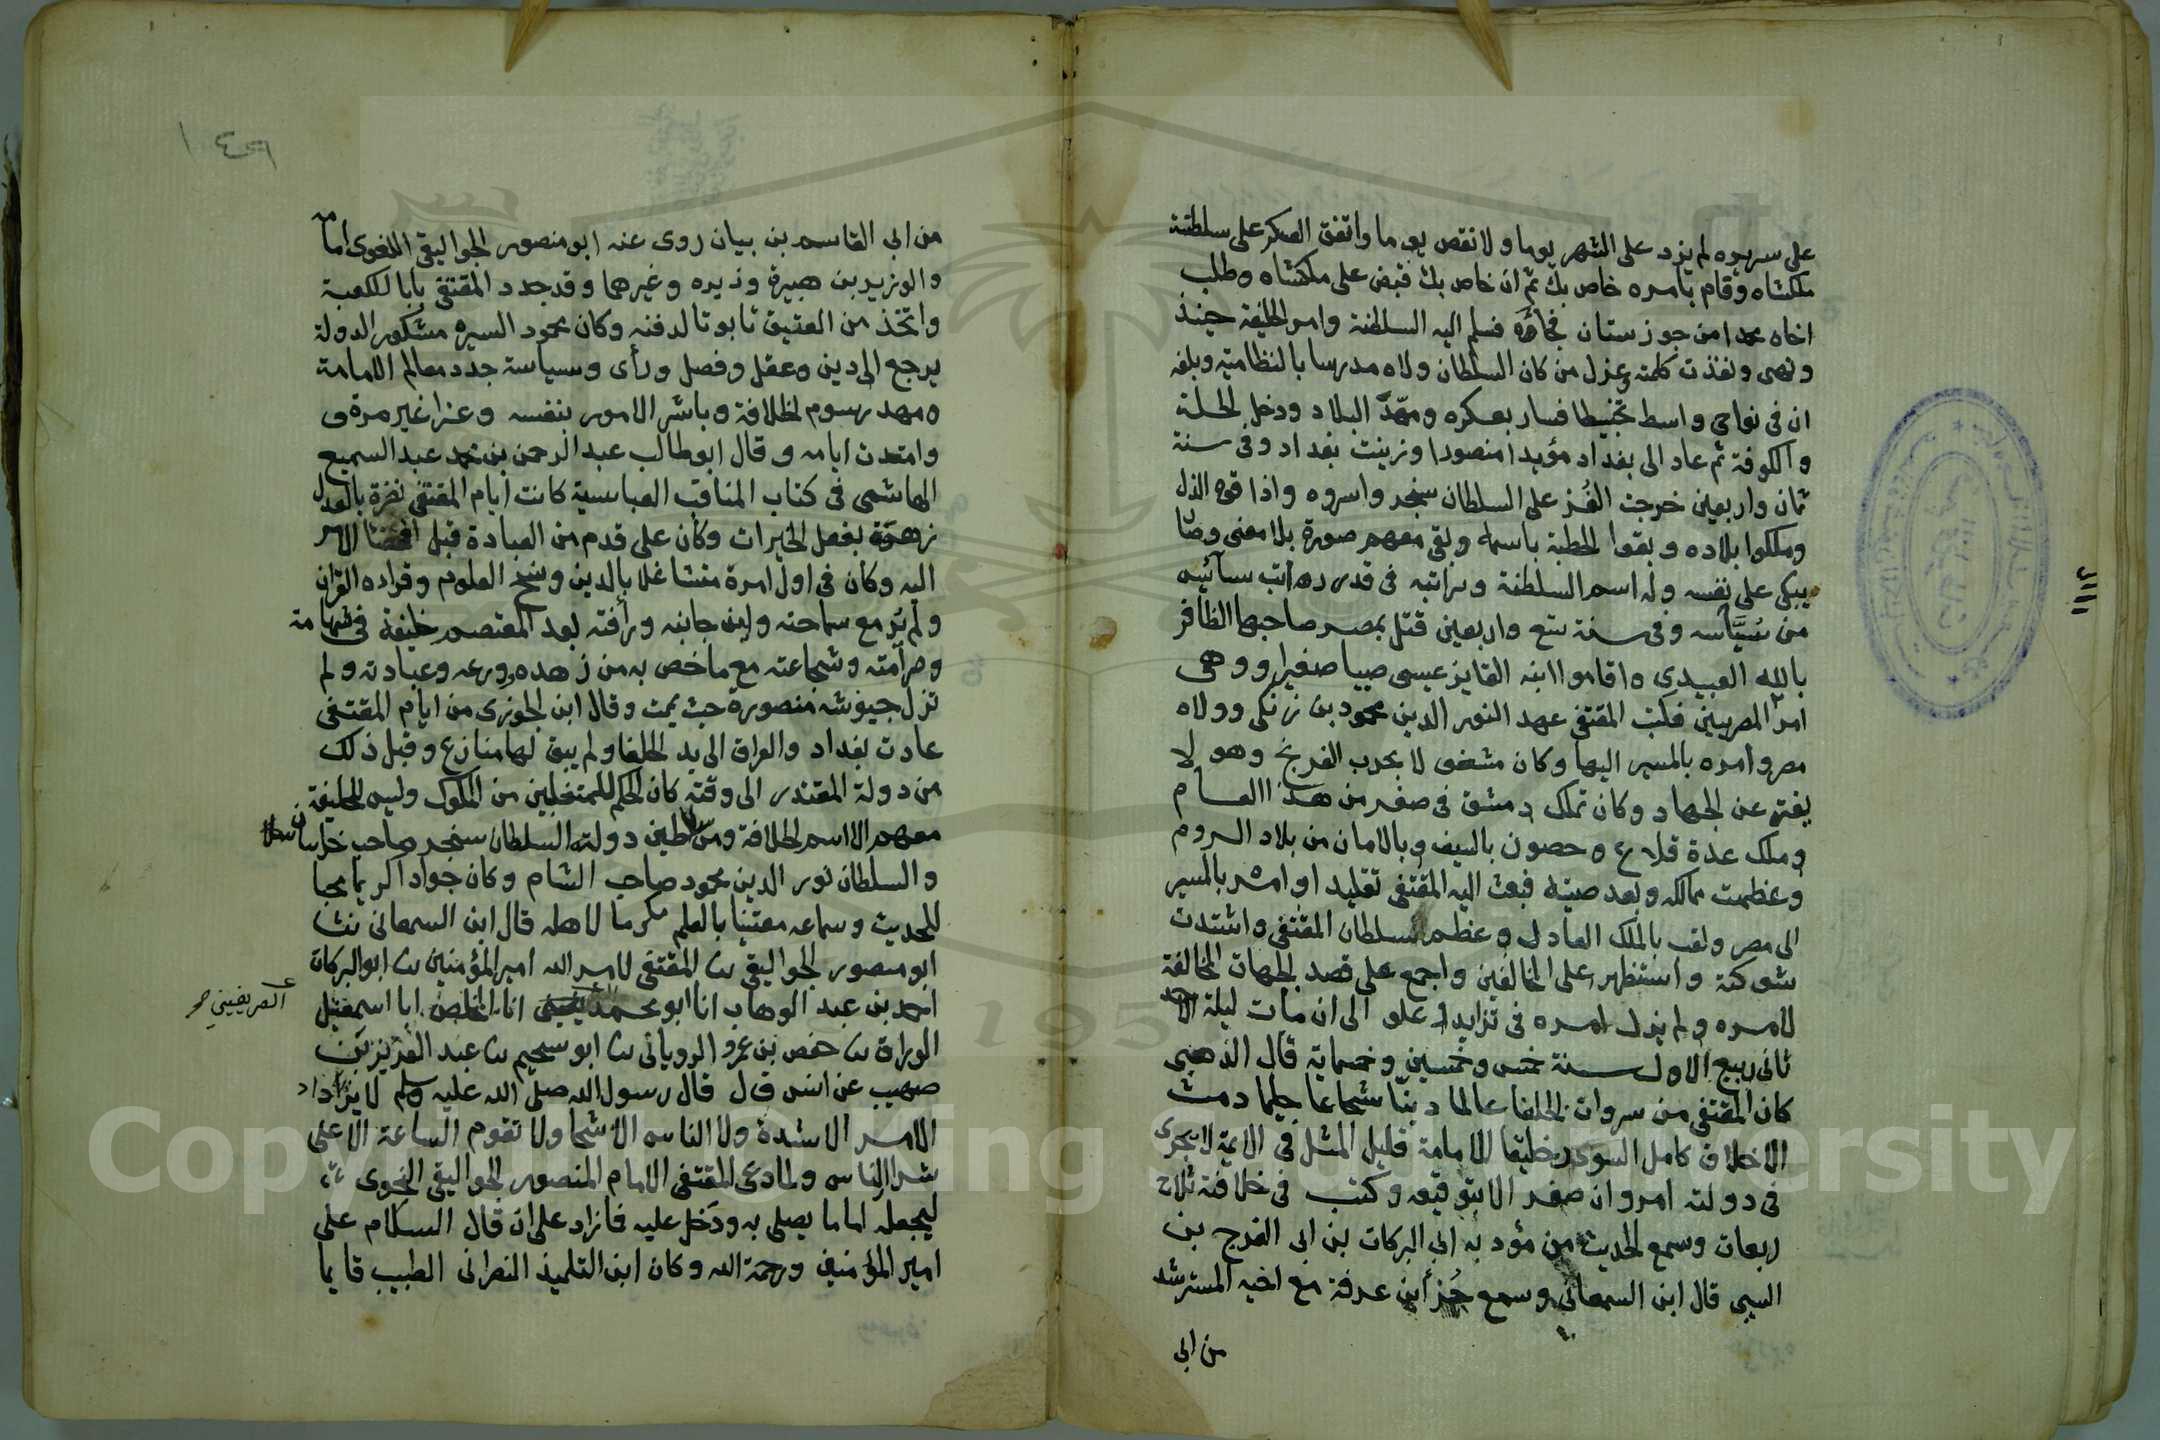 على سريره لم يزد على الشهر يوما ولا نقص يوما واتفق العسكر على سلطنة
ملكشاه وقام بامره خاص بك ثم ان خاص بك قبض على ملكشاه وطلب
اخاه محمدا من خوزستان فجاءه فسلم اليه السلطنة وامر الخليفة حينئذ
ونهى ونفذت كلمته وعزل من كان السلطان ولاه مدرسا بالنظامية وبلغه
ان في نواحي واسط تخبيطا فسار بعسكره ومهّد البلاد ودخل الحلة
والكوفة ثم عاد الى بغداد مؤيدا منصورا وزينت بغداد وفي سنة
ثمان واربعين خرجت الغُز على السلطان سنجر واسروه واذاقوه الذل
وملكوا بلاده وبقوا الخطبة باسمه وبقي معهم صورة بلا معنى وصار
يبكي على نفسه وله اسم السلطنة وراتبه في قدر راتب سائس
من سُيَّاسه وفي سنة تسع واربعين قتل بمصر صاحبها الظافر
بالله العبيدي واقاموا ابنه الفايز عيسى صبيا صغيرا ووهى
امر المصريين فكتب المقتفي عهد النور الدين محمود بن زنكي وولاه
مصر وامره بالمسير اليها وكان مشغولا بحرب الفرنج وهو لا
يفتر عن الجهاد وكان تملك دمشق في صفر من هذا العام
وملك عدة قلاع وحصون بالسيف وبالامان من بلاد الروم
وعظمت ممالكه وبعد صيته فبعث اليه المقتفي تقليدا وامره بالمسير
الى مصر ولقب بالملك العادل وعظم سلطان المقتفي واشتدت
شوكته واستظهر على المخالفين واجمع على قصد الجهات المخالفة
لامره ولم يزل امره في تزايد وعلو الى ان مات ليلة الاحد
ثاني ربيع الاول سنة خمس وخمسين وخمسماية قال الذهبي
كان المقتفي من سروات الخلفا عالما دينّا شجاعا حليما دمث
الاخلاق كامل السودد خليقا للامامة قليل المثل في الايمة لا يجرى
في دولته امر وان صغر الا بتوقيعه وكتب في خلافته ثلاث
ربعات وسمع الحديث من مؤدبه ابي البركات بن ابي الفرج بن
السبي قال ابن السمعاني وسمع جُزء ابن عرفة مع اخيه المسترشد
من ابي
من ابي القاسم بن بيان روى عنه ابو منصور الجواليقي اللغوى امامه
والوزير بن هبيرة وزيره وغيرهما وقد جدد المقتفي بابا للكعبة
واتخذ من العتيق تابوتا لدفنه وكان محمود السيرة مشكور الدولة
يرجع الى دين وعقل وفضل ورأى وسياسة جدد معالم الامامة
ومهد رسوم الخلافة وباشر الامور بنفسه وغزا غير مرة و
وامتدت ايامه وقال ابو طالب عبد الرحمن بن محمد عبد السميع
الهاشمي في كتاب المناقب العباسية كانت أيام المقتفي نضرة بالعدل
زهرة بفعل الخيرات وكان على قدم من العبادة قبل افضاء الامر
اليه وكان في اول امره متشاغلا بالدين ونسخ العلوم وقراءه القران
ولم يُر مع سماحته ولين جانبه ورأفته بعد المعتصم خليفة في شهامته
وصرامته وشجاعته مع ما خص به من زهده وورعه وعبادته ولم
تزل جيوشه منصورة حيث يممت وقال ابن الجوزى من ايام المقتفي
عادت بغداد والعراق الى يد الخلفا ولم يبق لها منازع وقبل ذلك
من دولة المقتدر الى وقته كان الحكم للمتغلبين من الملوك وليس للخليفة
معهم الا اسم الخلافة ومن سلاطين دولته السلطان سنجر صاحب خراسان
والسلطان نور الدين محمود صاحب الشام وكان جوادا كريما محبا
للحديث وسماعه معتنيا بالعلم مكرما لاهله قال ابن السمعاني ثنا
ابو منصور الجواليقي ثنا المقتفي لامر الله امير المؤمنين ثنا ابو البركات
احمد بن عبد الوهاب انا ابو محمد الصريفيني انا المخلص انا اسمعيل
الوراق ثنا حفص بن عمرو الروياني ثنا ابو سحيم ثنا عبد العزيز بن
صهيب عن انس قال قال رسول الله صلى الله عليه وسلم لا يزداد
الامر الا شدة ولا الناس الا شحا ولا تقوم الساعة الا على
شرار الناس ولما دعى المقتفي الامام المنصور الجواليقي النحوى
ليجعله اماما يصلي به ودخل عليه فما زاد على ان قال السلام على
امير المؤمنين ورحمة الله وكان ابن التلميذ النصراني الطبيب قايما
Copyright © King Saud University
195